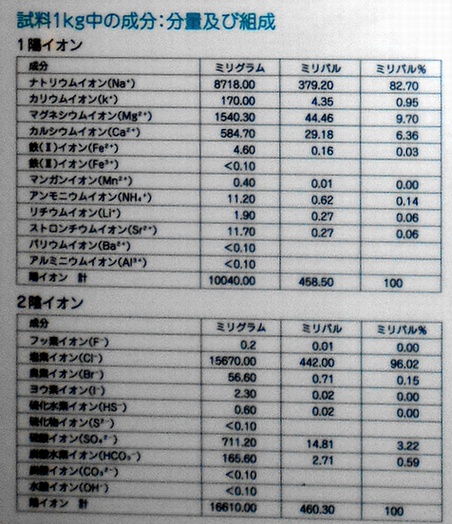 試料1kg中の成分:分量及び組成
1陽イオン
成分 ミリグラム ミリバル ミリバル%
ナトリウムイオン(Na⁺) 8718.00 379.20 82.70
カリウムイオン(k⁺) 170.00 4.35 0.95
マグネシウムイオン(Mg²⁺) 1540.30 44.46 9.70
カルシウムイオン(Ca²⁺) 584.70 29.18 6.36
鉄(Ⅱ)イオン(Fe²⁺) 4.60 0.16 0.03
鉄(Ⅲ)イオン(Fe³⁺) <0.10
マンガンイオン(Mn²⁺) 0.40 0.01 0.00
アンモニウムイオン(NH₄⁺) 11.20 0.62 0.14
リチウムイオン(Li⁺) 1.90 0.27 0.06
ストロンチウムイオン(Sr²⁺) 11.70 0.27 0.06
バリウムイオン(Ba²⁺) <0.10
アルミニウムイオン(Al³⁺) <0.10
陽イオン 計 10040.00 458.50 100
2陰イオン
成分 ミリグラム ミリバル ミリバル%
フッ素イオン(F⁻) 0.2 0.01 0.00
塩素イオン(Cl⁻) 15670.00 442.00 96.02
臭素イオン(Br⁻) 56.60 0.71 0.15
ヨウ素イオン(I⁻) 2.30 0.02 0.00
硫化水素イオン(HS⁻) 0.60 0.02 0.00
硫化物イオン(S²⁻) <0.10
硫酸イオン(SO₄²⁻) 711.20 14.81 3.22
炭酸水素イオン(HCO₃⁻) 165.60 2.71 0.59
炭酸イオン(CO₃²⁻) <0.10
水酸イオン(OH⁻) <0.10
陰イオン 計 16610.00 460.30 100